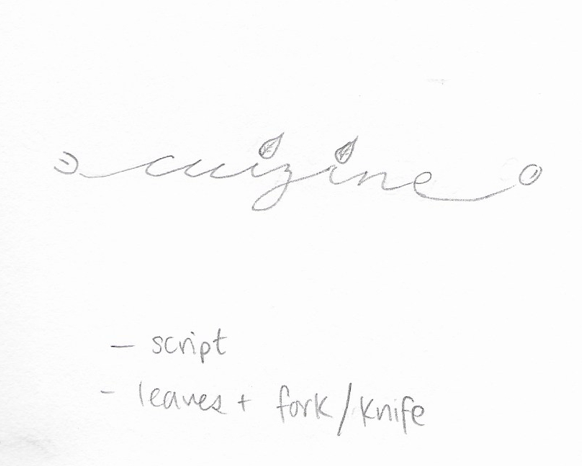 cuizine
- script
- leaves + fork/knife